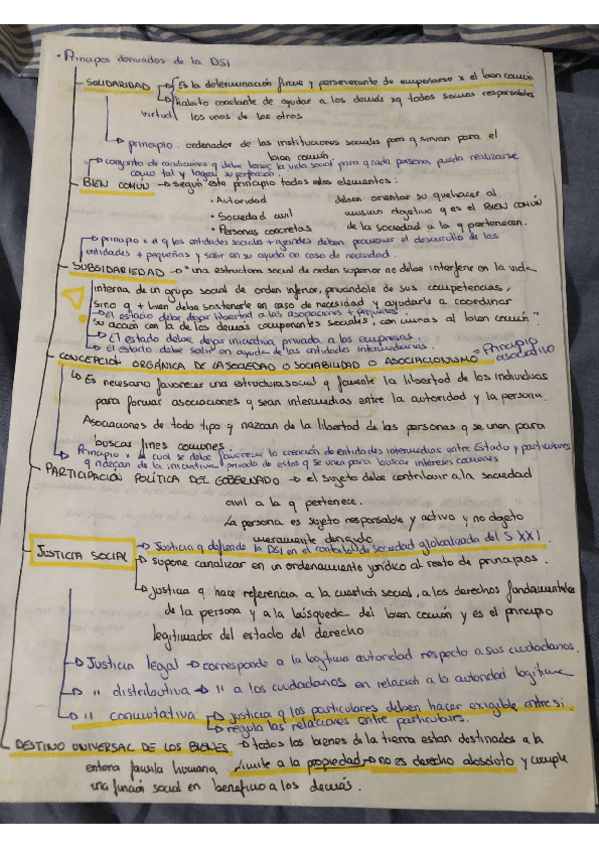 · Principios derivados de la DSI
SOLIDARIDAD → Es la determinación firme y perseverante de empeñarse x el bien común
virtud → hábito constante de ayudar a los demás xq todos somos responsables
los unos de los otros
→ principio ordenador de las instituciones sociales para q sirvan para el
bien común.
→ conjunto de condiciones q debe tener la vida social para q cada persona pueda realizarse
como tal y lograr su perfección.
BIEN COMÚN → según este principio todos estos elementos:
· Autoridad deben orientar su quehacer al
· Sociedad civil mismo objetivo q es el BIEN COMÚN
· Personas concretas de la sociedad a la q pertenecen.
→ principio x el q las entidades sociales + grandes deben promover el desarrollo de las
entidades + pequeñas y salir en su ayuda en caso de necesidad.
SUBSIDARIEDAD → "una estructura social de orden superior no debe interferir en la vida
interna de un grupo social de orden inferior, privándole de sus competencias,
sino q + bien debe sostenerle en caso de necesidad y ayudarle a coordinar
→ El estado debe dejar libertad a las asociaciones + pequeñas
su acción con la de los demás componentes sociales, con miras al bien común"
→ El estado debe dejar iniciativa privada a las empresas.
→ El estado debe salir en ayuda de las entidades intermediarias.
CONCEPCIÓN ORGÁNICA DE LA SOCIEDAD O SOCIABILIDAD O ASOCIACIONISMO → Principio
asociativo
→ Es necesario favorecer una estructura social q fomente la libertad de los individuos
para formar asociaciones q sean intermedias entre la autoridad y la persona.
Asociaciones de todo tipo q nazcan de la libertad de las personas q se unen para
buscar fines comunes.
→ Principio x el cual se debe favorecer la creación de entidades intermedias entre Estado y particulares
q nazcan de la iniciativa privada de estos q se unen para buscar intereses comunes
PARTICIPACIÓN POLÍTICA DEL GOBERNADO → el sujeto debe contribuir a la sociedad
civil a la q pertenece.
La persona es sujeto responsable y activo y no objeto
meramente dirigido
JUSTICIA SOCIAL → Justicia q defiende la DSI en el contexto de sociedad globalizada del S XXI.
→ supone canalizar en un ordenamiento jurídico al resto de principios.
→ justicia q hace referencia a la cuestión social, a los derechos fundamentales
de la persona y a la búsqueda del bien común y es el principio
legitimador del estado del derecho
→ Justicia legal → corresponde a la legítima autoridad respecto a sus ciudadanos.
→ " distributiva → " a los ciudadanos en relación a la autoridad legítima
→ " conmutativa → justicia q los particulares deben hacer exigible entre si.
→ regula las relaciones entre particulares.
DESTINO UNIVERSAL DE LOS BIENES → todos los bienes de la tierra estan destinados a la
entera familia humana Limite a la propiedad → no es derecho absoluto y cumple
una función social en beneficio a los demás.